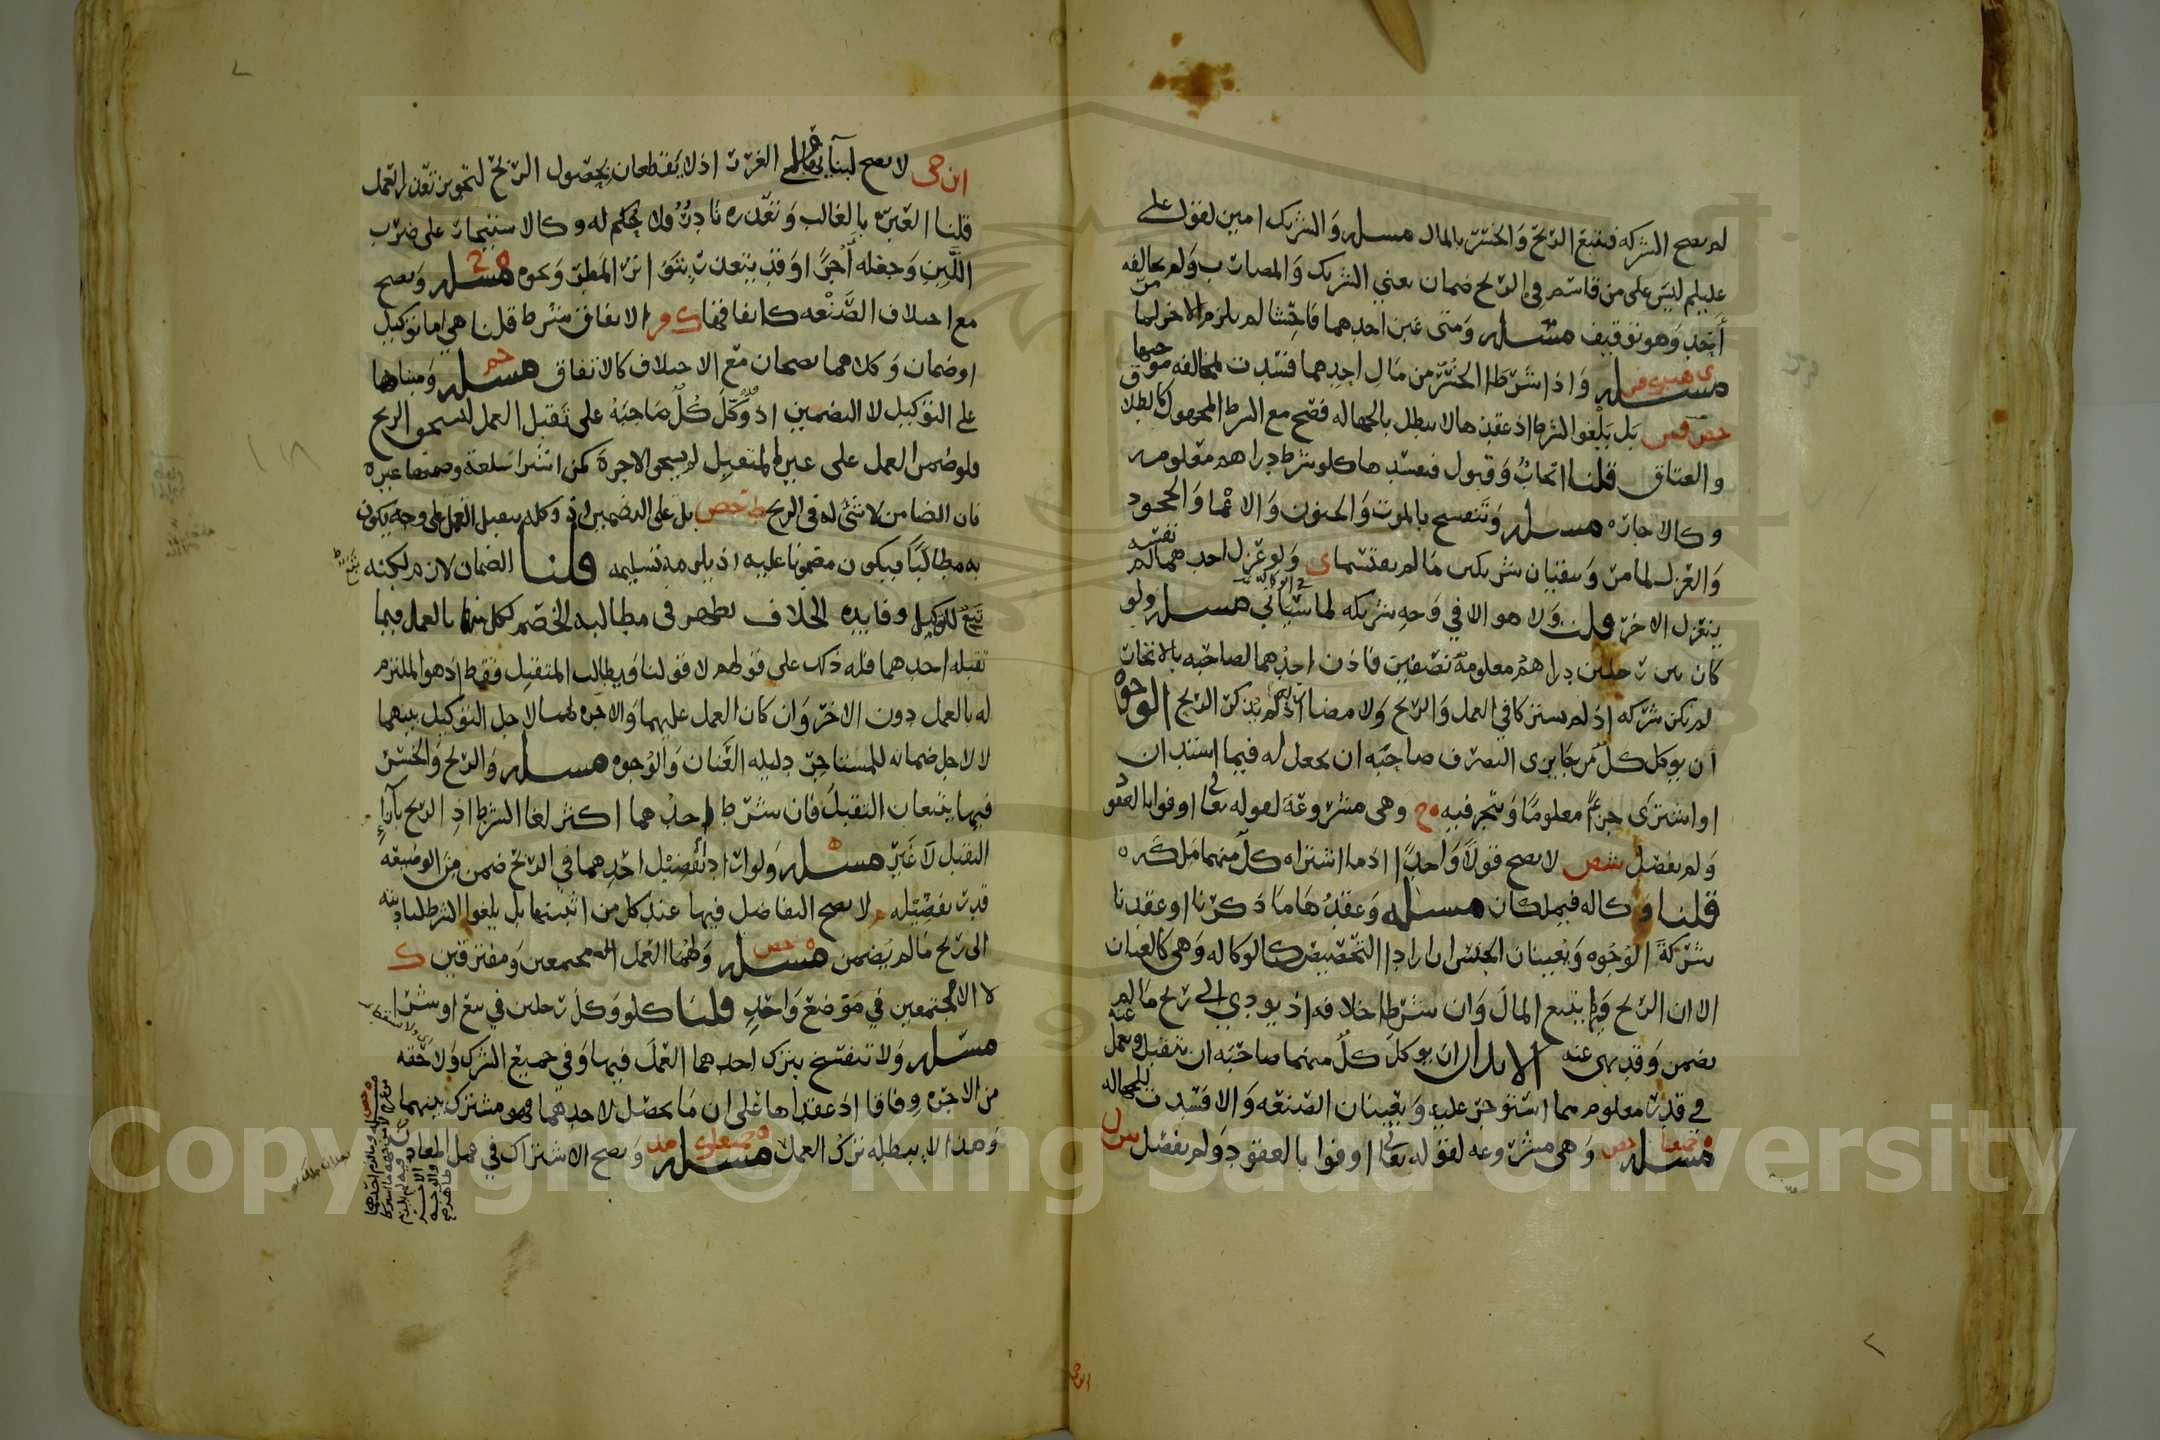 لم يصح الشركه فيتبع الربح والخسر بالمال مسله والشريك امين لقول علي
عليلم ليس على من قاسم في الربح ضمان يعني الشريك والمضارب ولم يخالفه
أحد وهو توقيف مسله ومتى غبن احدهما فاحشا لم يلزم الاخر لما مر
مسله واذا شرط الخسر من مال احدهما فسدت لمخالفه موجبها
بل يلغوا الشرط اذ عقدها لا يبطل بالجهاله فصح مع الشرط المجهول كالطلاق
والعتاق قلنا ايجاب وقبول فيفسدها كلو شرط دراهم معلومه
وكالاجاره مسله وتنفسخ بالموت والجنون والاغما والجحود
والعزل لما مر ويبقيان شريكين مالم يقتسما ي ولو عزل احدهما نفسه لم
ينعزل الاخر قلت ولا هو الا في وجه شريكه لما سياتي في الوكاله مسله ولو
كان بين رجلين دراهم معلومة نصفين فاذن احدهما لصاحبه بالاتجار
لم تكن شركه اذ لم يشتركا في العمل والربح ولا مضاربه اذ لم يذكر الربح الوجوه
أن يوكل كل من جايزى التصرف صاحبه ان يجعل له فيما استدان
او اشترى جزءا معلوما ويتجر فيه ه ح وهي مشروعة لقوله تعالى اوفوا بالعقود
ولم يفصل ش ص لا يصح قولا واحدا اذ ما اشتراه كل منهما ملكه
قلنا وكاله فيملكان مسله وعقدها ما ذكرنا او عقدنا
شركة الوجوه ويعينان الجنس ان ارادا التخصيص كالوكاله وهي كالعنان
الا ان الربح فيها يتبع المال وان شرطا خلافه اذ يودي الى ربح مالم
يضمن وقد نهي عنه الابدان ان يوكل كل منهما صاحبه ان يتقبل ويعمل عنه
في قدر معلوم مما استوجر عليه ويعينان الصنعه والا فسدت للجهاله
مسله وهي مشروعه لقوله تعالى اوفوا بالعقود ولم يفصل
ابن حى لا يصح لبنآيها على الغرر اذ لا يقطعان بحصول الربح لتجويز تعذر العمل
قلنا العبره بالغالب وتعذره نادر ولا حكم له وكالاستيجار على ضرب
اللبن وجعله أجرا وقد يتعذر بتواتر المطر ونحوه مسله ويصح
مع اختلاف الصنعه كاتفاقها ك فر الاتفاق شرط قلنا هي اما توكيل
او ضمان وكلاهما يصحان مع الاختلاف كالاتفاق مسله ومبناها
على التوكيل لا التضمين اذ وكل كل صاحبه على تقبل العمل ليستحق الربح
فلو ضمن العمل على غير المتقبل لم يستحق الاجرة كمن اشترا سلعة وضمنها غيره
فان الضامن لا شئ له في الربح ط حص بل على التضمين اذ وكله بتقبل العمل على وجه يكون
به مطالبا فيكون مضمونا عليه اذ يلزمه تسليمه قلنا الضمان لازم لكنه
تبع للتوكيل وفايده الخلاف تظهر في مطالبه الخصم لكل منهما بالعمل فيما
تقبله احدهما فله ذلك على قولهم لا قولنا ويطالب المتقبل فقط اذ هو الملتزم
له بالعمل دون الاخر وان كان العمل عليهما والاجره لهما لاجل التوكيل بينهما
لا لاجل ضمانه للمستاجر دليله العنان والوجوه مسله والربح والخسر
فيها يتبعان التقبل فان شرط احدهما اكثر لغا الشرط اذ الربح بآزاء
التقبل لا غير مسله ولو ارادا تفضيل احدهما في الربح ضمن من الوضيعه
قدر تفضيله م لا يصح التفاضل فيها عند كل من اثبتها بل يلغوا الشرط لتاديته
الى ربح مالم يضمن مسله ولهما العمل مجتمعين ومفترقين ك
لا الا مجتمعين في موضع واحد قلنا كلو وكل رجلين في بيع او شرا
مسله ولا تنفسخ بترك احدهما العمل فيها وفي جميع الشرك ولا حقه
من الاجره وفاقا اذ عقداها على ان ما يحصل لاحدهما فهو مشترك بينهما
وهذا لا يبطله ترك العمل مسله ويصح الاشتراك في عمل المعادن
Copyright © King Saud University